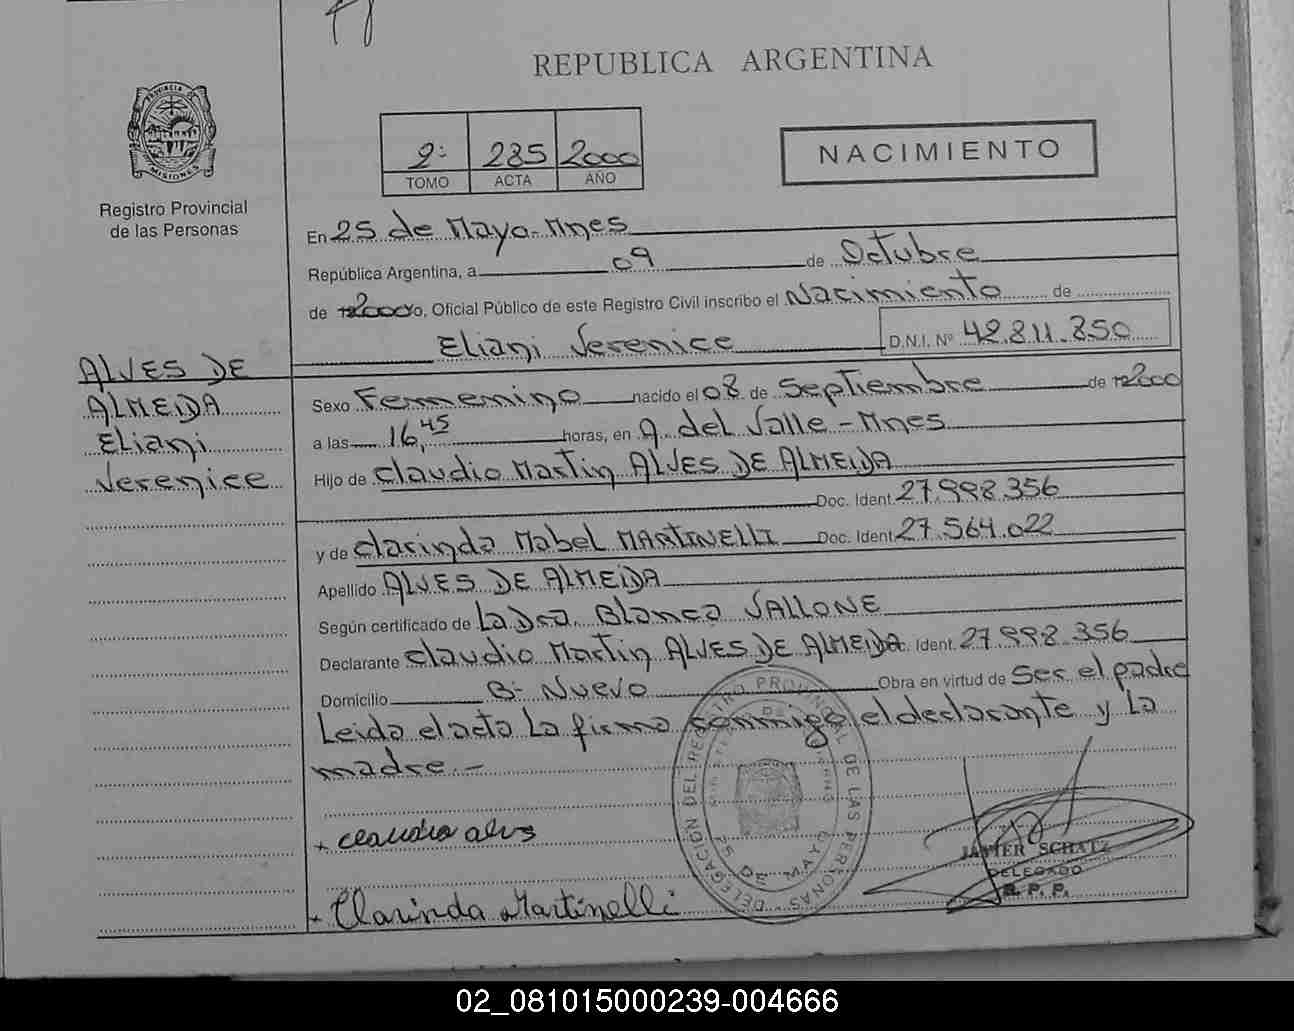 REPUBLICA ARGENTINA
PROVINCIA DE MISIONES
2º 285 2000
TOMO ACTA AÑO
NACIMIENTO
Registro Provincial
de las Personas
En 25 de Mayo-Mnes
República Argentina, a 09 de Octubre
de 2000, Oficial Público de este Registro Civil inscribo el Nacimiento de
Eliani Verenice D.N.I. Nº 42.811.850
ALVES DE
ALMEIDA
Eliani
Verenice
Sexo Femenino nacido el 08 de Septiembre de 2000
a las 16,45 horas, en A. del Valle - Mnes
Hijo de Claudio Martin ALVES DE ALMEIDA
Doc. Ident. 27.998.356
y de Clarinda Mabel MARTINELLI Doc. Ident. 27.564.022
Apellido ALVES DE ALMEIDA
Según certificado de La Dra. Blanca VALLONE
Declarante Claudio Martin ALVES DE ALMEIDA Doc. Ident. 27.998.356
Domicilio Bº Nuevo Obra en virtud de Ser el padre
Leida el acta La firma conmigo el declarante y La
madre.-
DELEGACION DEL REGISTRO PROVINCIAL DE LAS PERSONAS
25 DE MAYO
+ Claudio alvs
JAVIER SCHATZ
DELEGADO
R. P. P.
+ Clarinda Martinelli
02_081015000239-004666